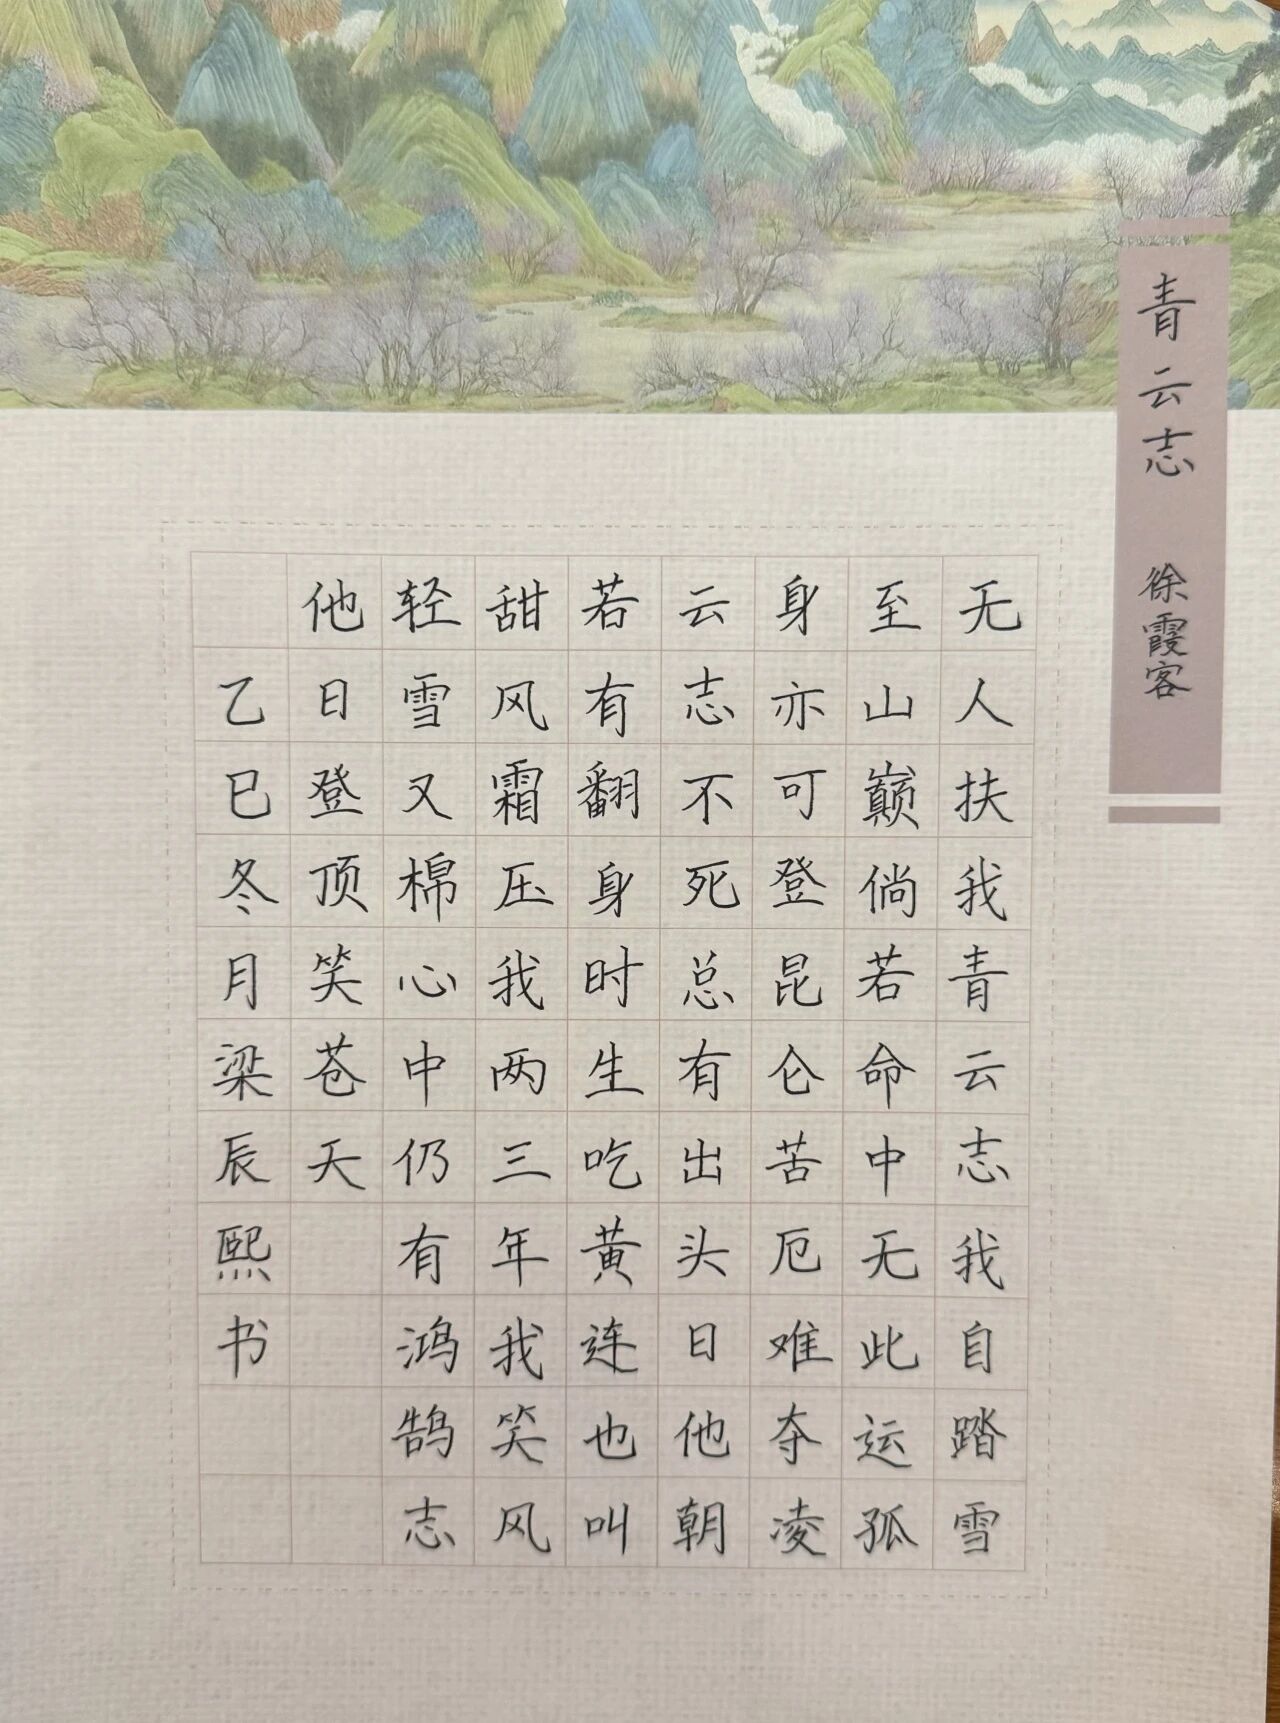 青云志 徐霞客
无人扶我青云志我自踏雪
至山巅倘若命中无此运孤
身亦可登昆仑苦厄难夺凌
云志不死总有出头日他朝
若有翻身时生吃黄连也叫
甜风霜压我两三年我笑风
轻雪又棉心中仍有鸿鹄志
他日登顶笑苍天
乙巳冬月梁辰熙书